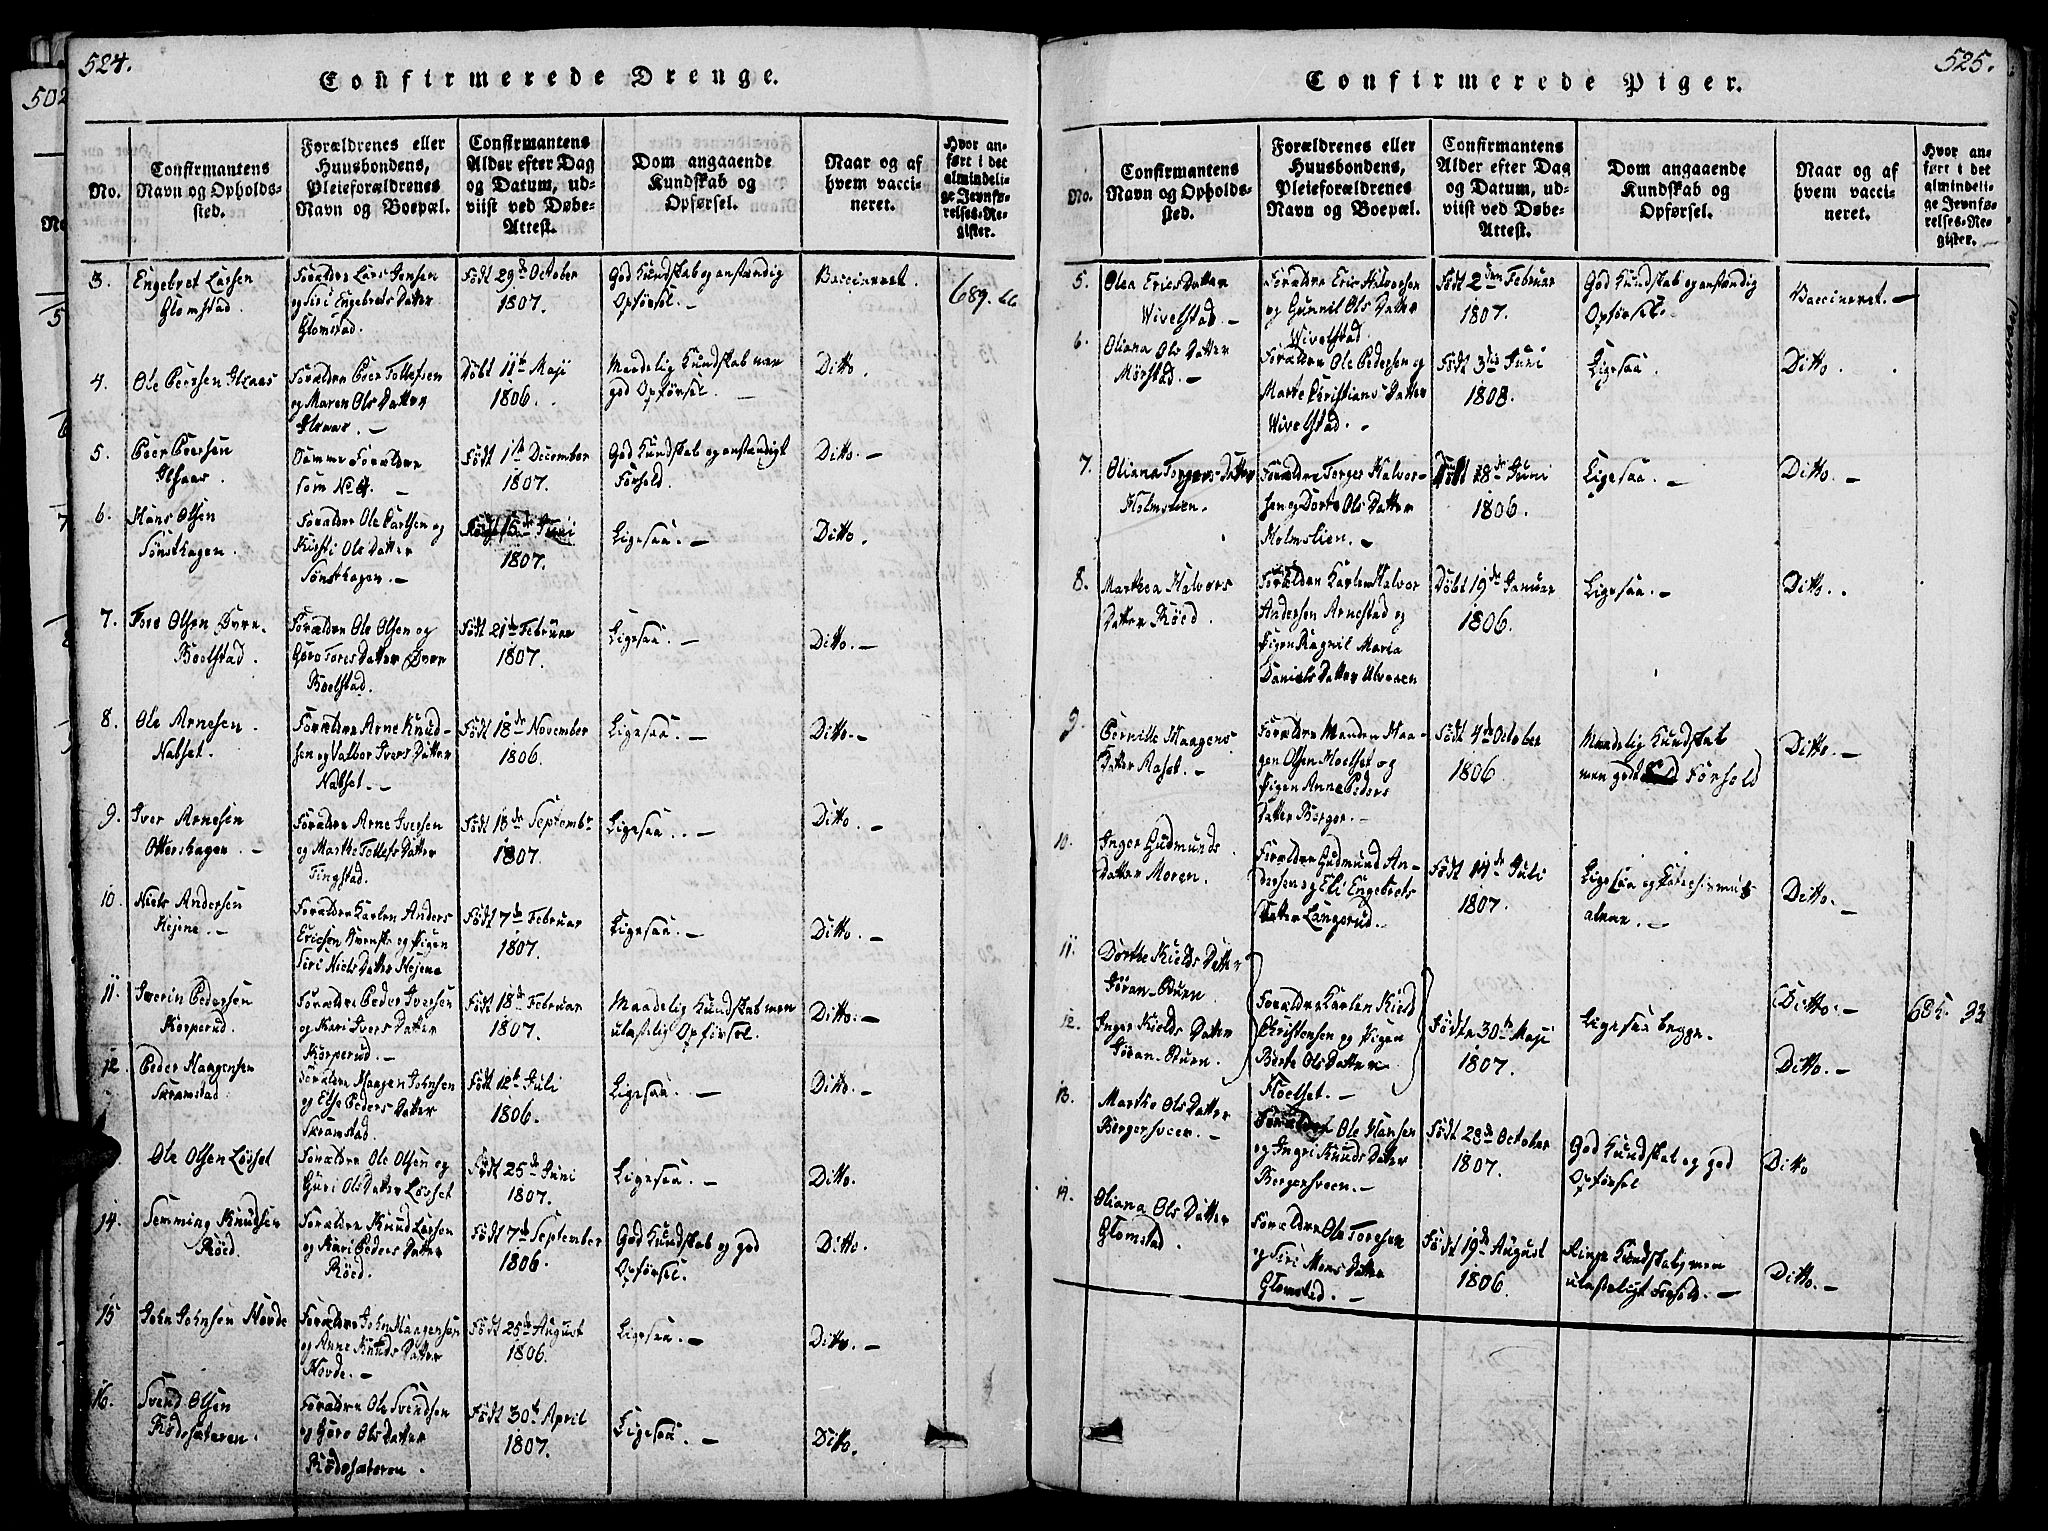 524.
Confirmerede Drenge.
No.
Confirmantens
Navn og Opholds-
sted.
Forældrenes eller
Huusbondens,
Pleieforældrenes
Navn og Boepæl.
Confirmantens
Alder efter Dag
og Datum, ud-
viist ved Døbe-
Attest.
Dom angaaende
Kundskab og
Opførsel.
Naar og af
hvem vacci-
neret.
Hvor an-
ført i det
almindeli-
ge Jevnfø-
relses-Re-
gister.
3.
Engebret Larsen
Glomstad.
Forældre Lars Jensen
og Siri Engebrets Datter
Glomstad.
Født 29de October
1807.
God Kundskab og anstændig
Opførsel. -
Vaccineret.
689. 66
4.
Ole Peersen
Forældre Peer Tollefsen
og Maren Ols Datter
Døbt 11te Maji
1806.
Maadelig Kundskab men
god Opførsel.
Ditto.
5.
Peer Peersen
Samme Forældre
som No 4. -
Født 1te December
1807.
God Kundskab og anstændigt
Forhold.
Ditto. -
6.
Hans Olsen
Sønsthagen.
Forældre Ole Carlsen og
Kirsti Ols Datter
Sønsthagen. -
Født 15de Juni
1807.
Ligesaa. -
Ditto.
7.
Tore Olsen Øvre-
Boelstad.
Forældre Ole Olsen og
Goro Tores Datter Øvre
Boelstad.
Født 21de Februar
1807.
Ligesaa. -
Ditto. -
8.
Ole Arnesen.
Nabset.
Forældre Arne Knud-
sen og Valbor Ivers Datter
Nabset. -
Født 18de November
1806.
Ligesaa. -
Ditto. -
9.
Iver Arnesen
Ottershagen. -
Forældre Arne Iversen
og Marthe Tollefs Datter
Tingstad.
Født 13de Septembr
1807.
Ligesaa. -
Ditto. -
10.
Niels Andersen
Hejene. -
Forældre Karlen Anders
Ericsen Svensk og Pigen
Siri Niels Datter Hejene
Født 7de Februar
1807.
Ligesaa. -
Ditto. -
11.
Iverin Pedersen
Korperud.
Forældre Peder Iversen
og Kari Ivers Datter
Korperud. -
Født 18de Februar
1807.
Maadelig Kundskab men
ulastelig Opførsel.
Ditto. -
12.
Peder Haagensen
Skramstad.
Forældre Haagen Johnsen
og Else Peders Datter
Skramstad.
Født 12te Juli
1806.
Ligesaa. -
Ditto. -
Ole Olsen Løvset
Forældre Ole Olsen og
Guri Ols Datter Løvset
Født 25de Juni
1807.
Ligesaa. -
Ditto.
14.
Semming Knudsen
Røed.
Forældre Knud Larsen
og Kari Peders Datter
Røed.
Født 7de September
1806.
God Kundskab og god
Opførsel.
Ditto.
15
John Johnsen Hovde
Forældre John Haagensen
og Anne Knuds Datter
Hovde. -
Født 25de August
1806.
Ligesaa. -
Ditto. -
16.
Svend Olsen
Rødesæteren.
Forældre Ole Svendsen
og Goro Ols Datter
Rødesæteren.
Født 30te April
1807.
Ligesaa. -
Ditto.
525.
Confirmerede Piger.
No.
Confirmantens
Navn og Opholds-
sted.
Forældrenes eller
Huusbondens,
Pleieforældrenes
Navn og Boepæl.
Confirmantens
Alder efter Dag
og Datum, ud-
viist ved Døbe-
Attest.
Dom angaaende
Kundskab og
Opførsel.
Naar og af
hvem vacci-
neret.
Hvor an-
ført i det
almindeli-
ge Jevnfø-
relses-Re-
gister.
5.
Olea Erics Datter
Wivelstad. -
Forældre Eric Halvorsen
og Gunnil Ols Datter
Wivelstad.
Født 2den Februar
1807.
God Kundskab og anstændig
Opførsel.
Vaccineret. -
6.
Oliana Ols Datter
Mørstad. -
Forældre Ole Pedersen og
Marte Christians Datter
Wivelstad. -
Født 3die Juni
1808.
Ligesaa.
Ditto.
7.
Oliana Torgers Datter
Holmslien.
Forældre Torger Halvor-
sen og Dorte Ols Datter
Holmslien. -
Født 28de Juni
1806.
Ligesaa. -
Ditto. -
8.
Marthea Halvors
Datter Røed.
Forældre Karlen Halvor
Andersen Arnestad og
Pigen Ragnil Maria
Daniels Datter Ulveen
Døbt 19de Januar
1806.
Ligesaa. -
Ditto.
9.
Pernille Haagens
Datter Aaset. -
Forældre Manden Haa-
gen Olsen Moelset og
Pigen Anne Peders
Datter Berger. -
Født 4de October
1806
Maadelig Kundskab
men godt Forhold
Ditto. -
10.
Inger Gudmunds
Datter Moren.
Forældre Gudmund An-
dersen og Eli Engebrets
Datter Langerud. -
Født 14de Juli
1807.
Ligesaa og Catechismus
alene. -
Ditto. -
11.
Dorthe Kields Datter
12.
Inger Kields Datter
Forældre Karlen Kield
Christensen og Pigen
Berte Ols Datter
Floelset. -
Født 30te Maji
1807.
Ligesaa begge.
Ditto. -
Ditto. -
685. 33
13.
Marthe Ols Datter
Bergersveen. -
Forældre Ole Hansen
og Ingri Knuds Datter
Bergersveen. -
Født 28de October
1807.
God Kundskab og god
Opførsel
Ditto
14.
Oliana Ols Datter
Glomstad.
Forældre Ole Toresen
og Siri Mons Datter
Glomstad. -
Født 19de August
1806.
Ringe Kundskab, men
ulasteligt Forhold. -
Ditto. -